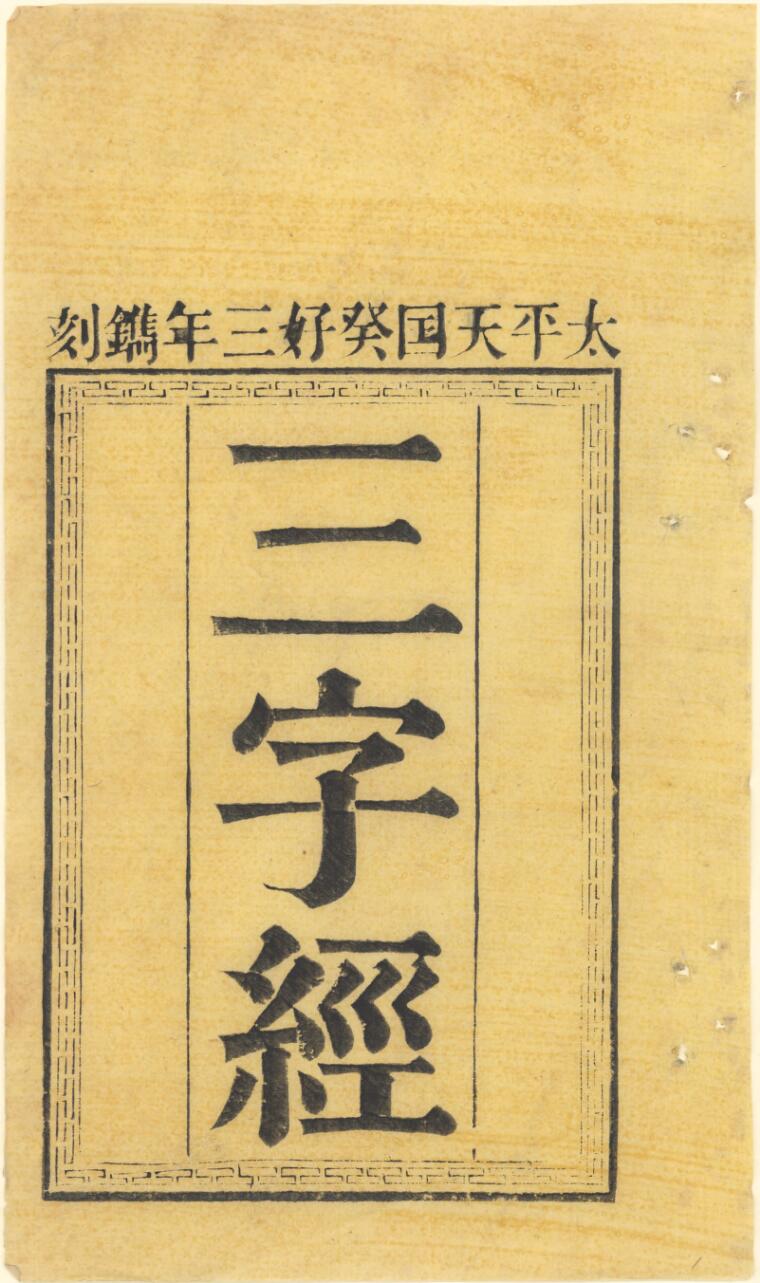 太平天囯癸好三年鐫刻
三字經